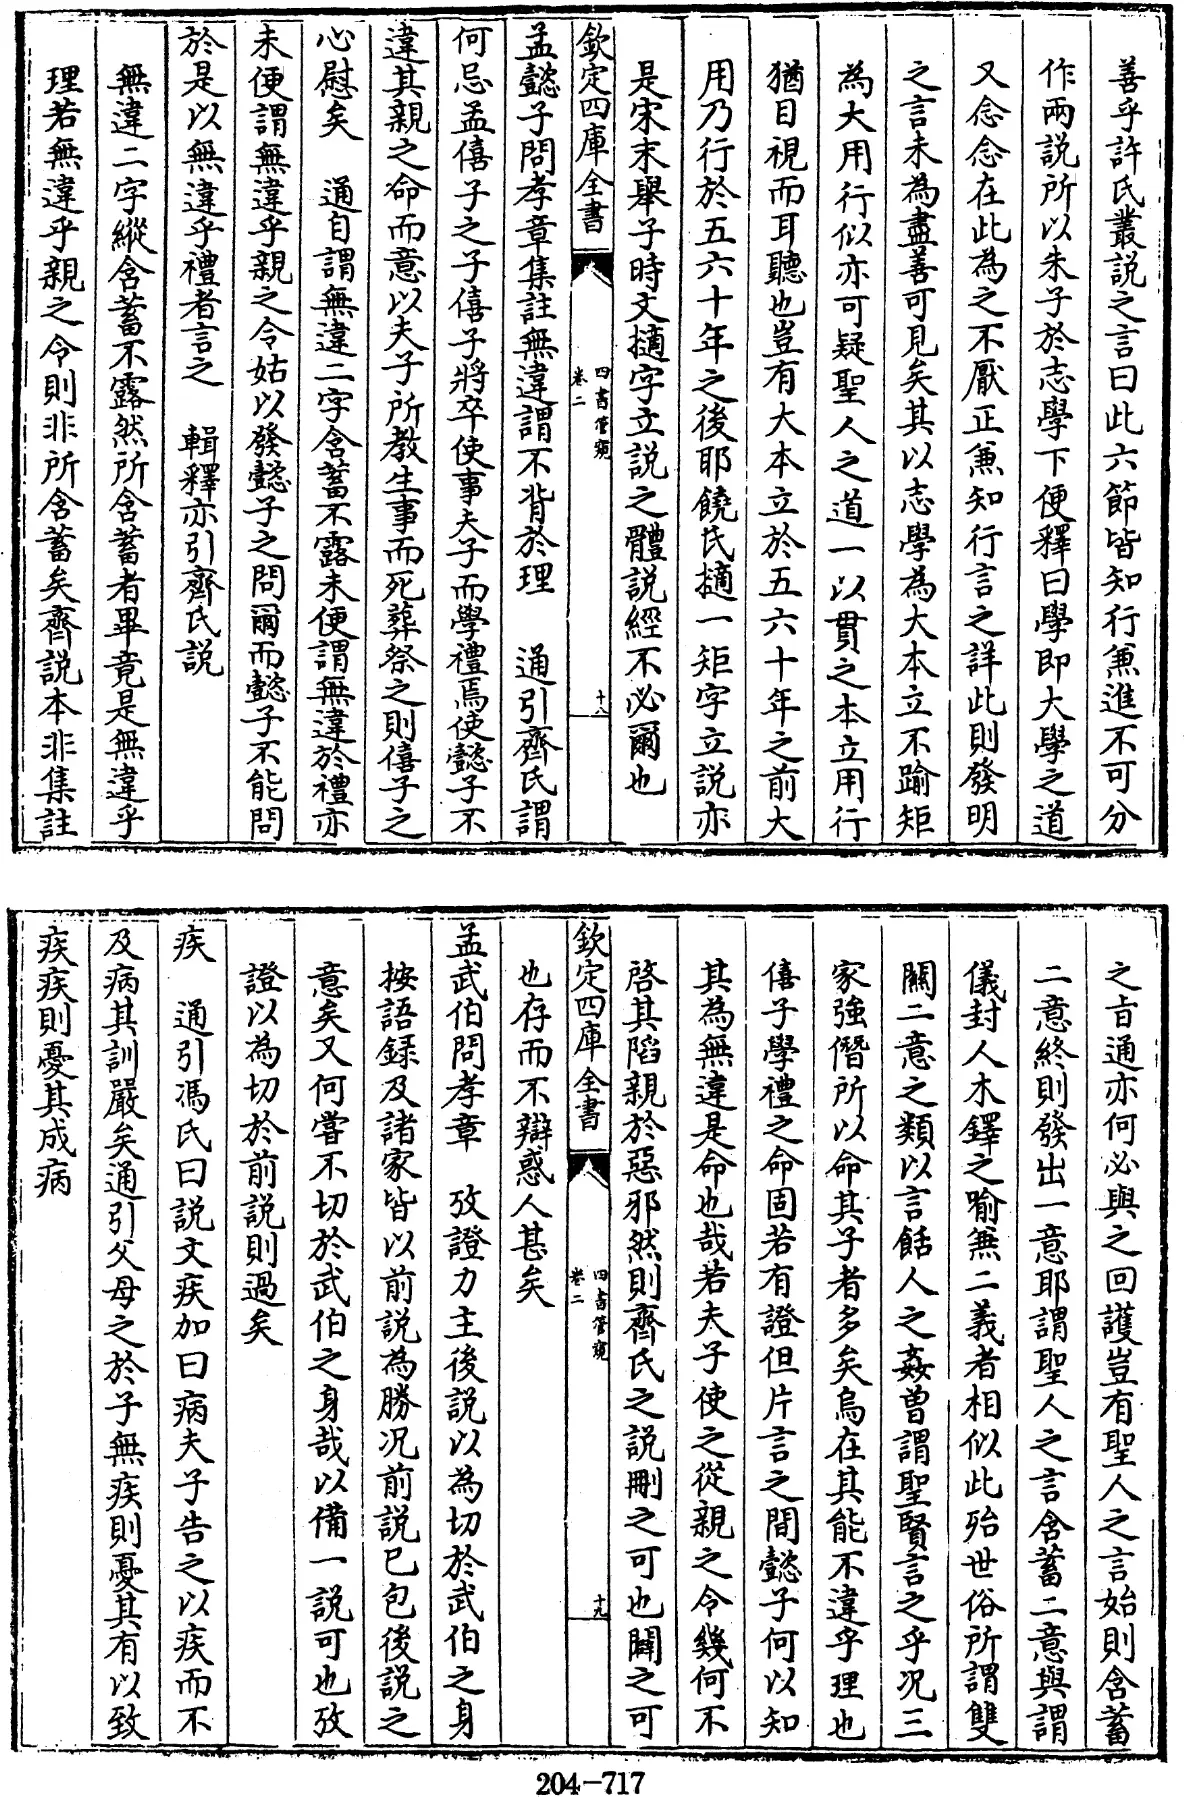 善乎許氏叢説之言曰此六節皆知行兼進不可分
作兩説所以朱子於志學下便釋曰學即大學之道
又念念在此為之不厭正兼知行言之詳此則發明
之言未為盡善可見矣其以志學為大本立不踰矩
為大用行似亦可疑聖人之道一以貫之本立用行
猶目視而耳聽也豈有大本立於五六十年之前大
用乃行於五六十年之後耶饒氏擿一矩字立説亦
是宋末舉子時文擿字立説之體説經不必爾也
欽定四庫全書
四書管窺
卷二
十八
孟懿子問孝章集註無違謂不背於理　通引齊氏謂
何忌孟僖子之子僖子將卒使事夫子而學禮焉使懿子不
違其親之命而意以夫子所教生事而死葬祭之則僖子之
心慰矣　通自謂無違二字含蓄不露未便謂無違於禮亦
未便謂無違乎親之令姑以發懿子之問爾而懿子不能問
於是以無違乎禮者言之　輯釋亦引齊氏説
無違二字縱含蓄不露然所含蓄者畢竟是無違乎
理若無違乎親之令則非所含蓄矣齊説本非集註
之旨通亦何必與之回護豈有聖人之言始則含蓄
二意終則發出一意耶謂聖人之言含蓄二意與謂
儀封人木鐸之喻兼二義者相似此殆世俗所謂雙
關二意之類以言餂人之姦曾謂聖賢言之乎况三
家強僭所以命其子者多矣烏在其能不違乎理也
僖子學禮之命固若有證但片言之間懿子何以知
其為無違是命也哉若夫子使之從親之令幾何不
啓其陷親於惡邪然則齊氏之説刪之可也闢之可
欽定四庫全書
四書管窺
卷二
十九
也存而不辯惑人甚矣
孟武伯問孝章　攷證力主後説以為切於武伯之身
按語録及諸家皆以前説為勝况前説已包後説之
意矣又何嘗不切於武伯之身哉以備一説可也攷
證以為切於前説則過矣
疾　通引馮氏曰説文疾加曰病夫子告之以疾而不
及病其訓嚴矣通引父母之於子無疾則憂其有以致
疾疾則憂其成病
204-717